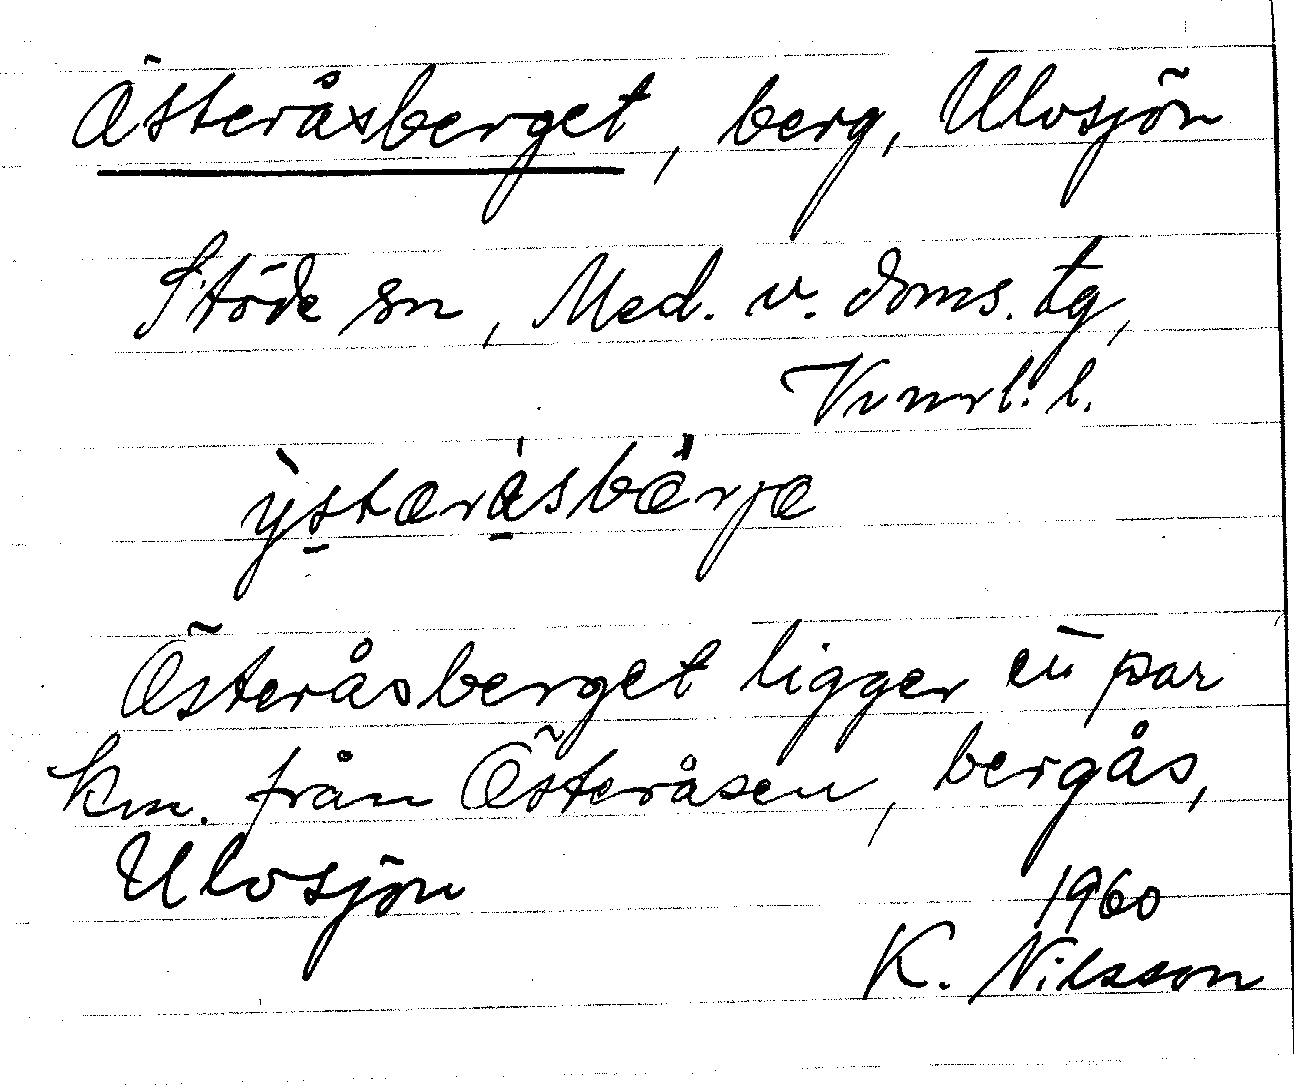 Österåsberget, berg, Ulvsjön
Stöde sn, Med. v. doms. tg,
Vnrl. l.
ỳstæràsbärjæ
Österåsberget ligger ett par
km. från Österåsen, bergås,
Ulvsjön
1960
K. Nilsson